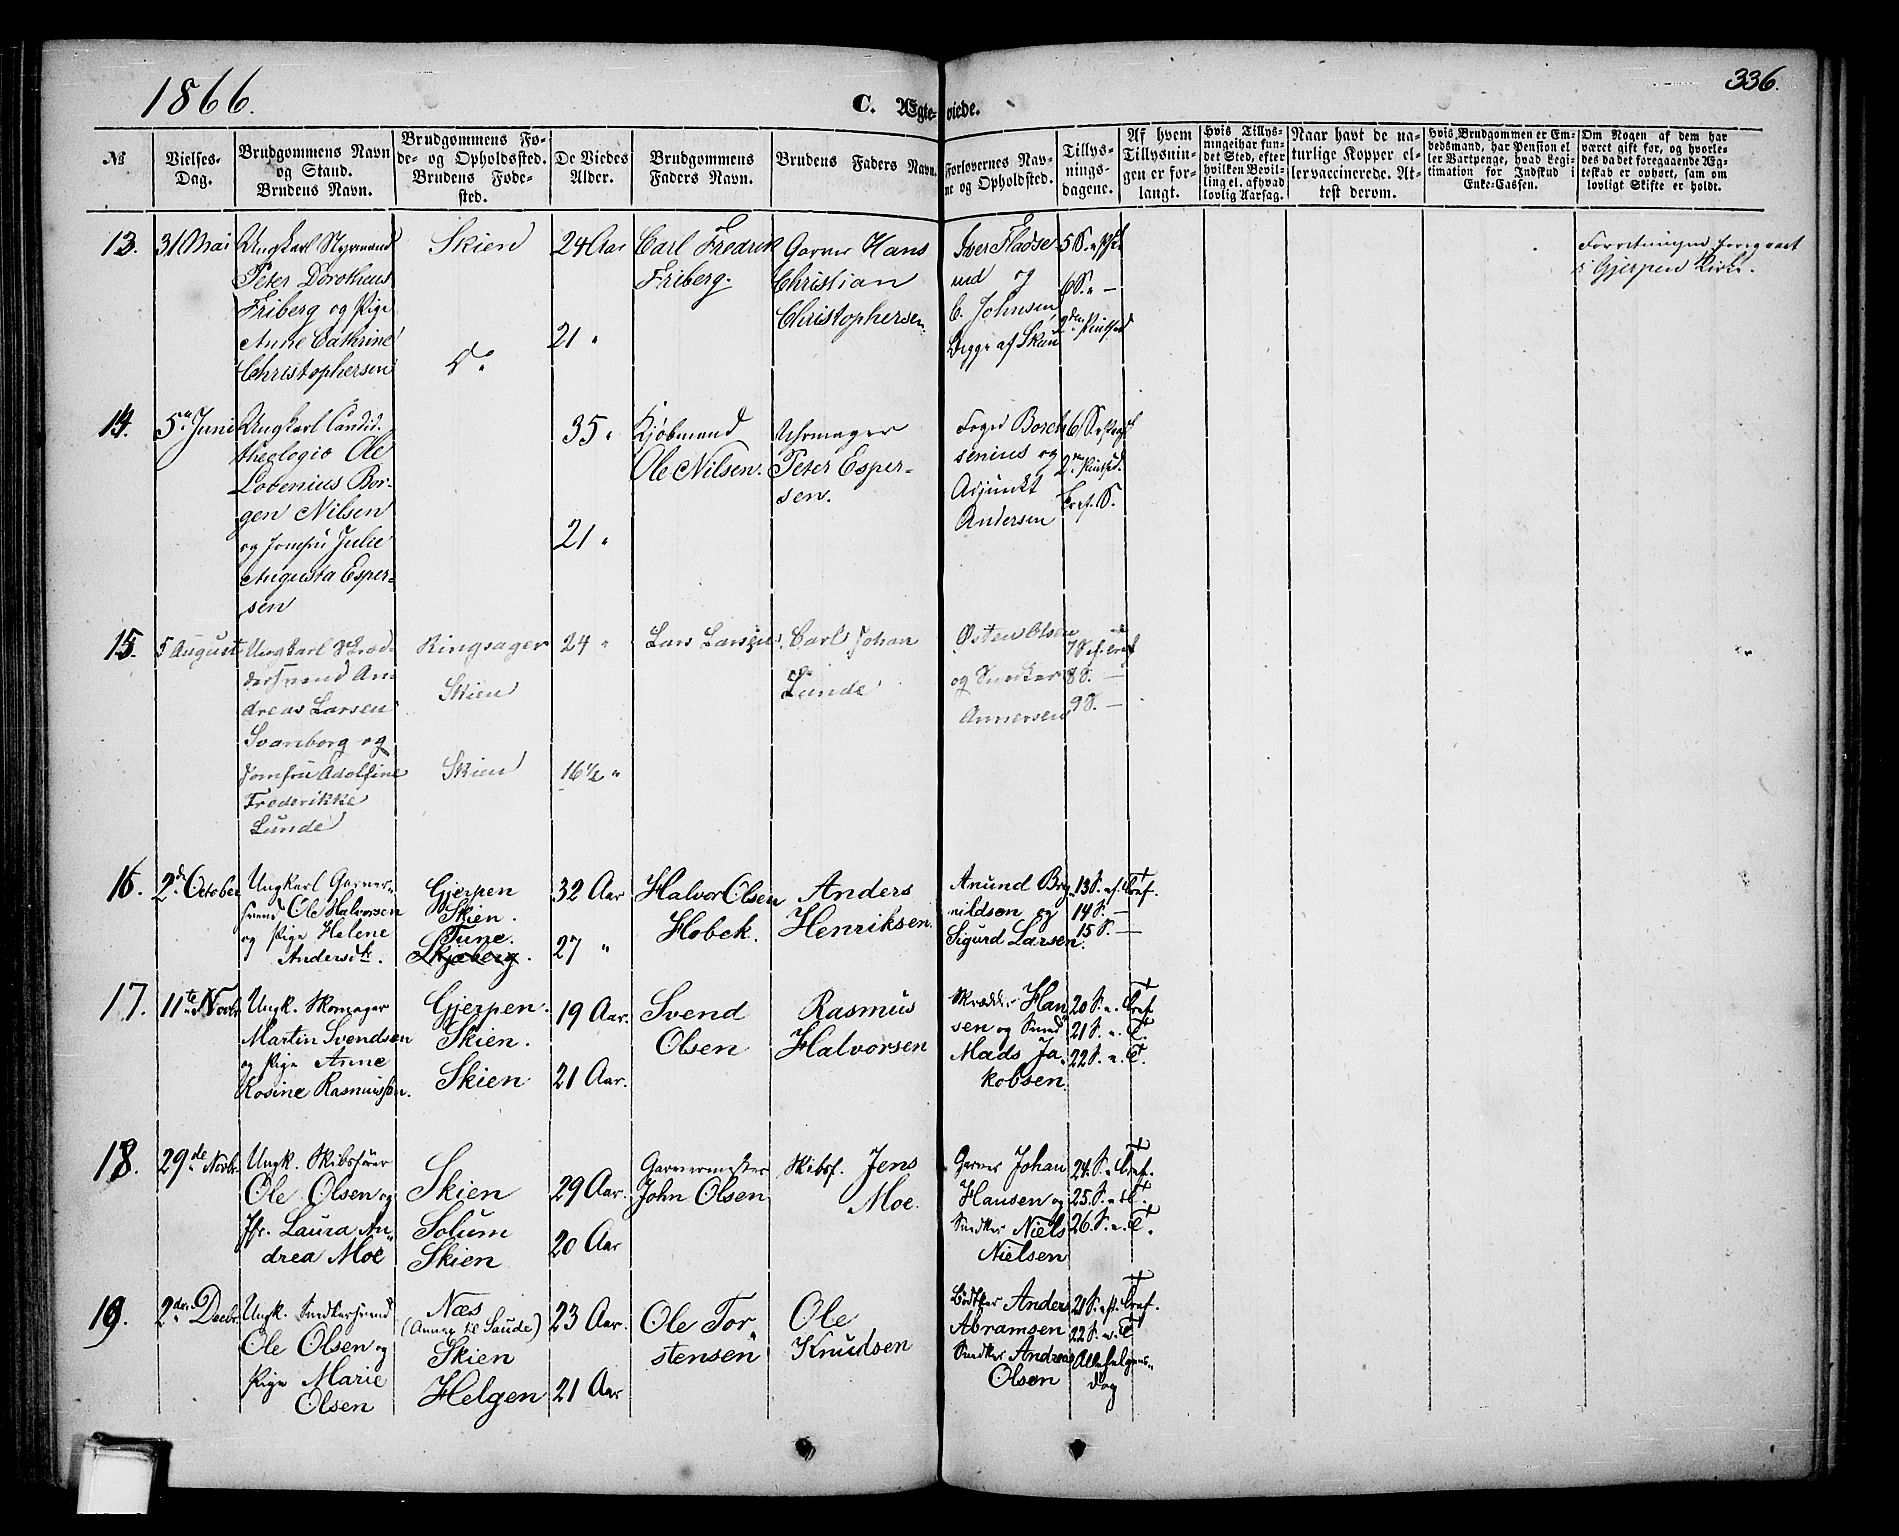 1866.
336.
C. Ægte-viede.
№
Vielses-Dag.
Brudgommens Navn og Stand. Brudens Navn.
Brudgommens Fø-de- og Opholdssted. Brudens Føde-sted.
De Viedes Alder.
Brudgommens Faders Navn.
Brudens Faders Navn.
Forlovernes Nav-ne og Opholdsted.
Tillys-nings-dagene.
Af hvem Tillysnin-gen er for-langt.
Hvis Tillys-ning ei har fun-det Sted, efter hvilken Bevil-ling el. af hvad lovlig Aarsag.
Naar havt de na-turlige Kopper el-ler vaccinerede. At-test derom.
Hvis Brudgommen er Em-bedsmand, har Pension el-ler Vartpenge, hvad Legi-timation for Indskud i Enke-Cassen.
Om Nogen af dem har været gift før, og hvorle-des da det foregaaende Æg-teskab er ophørt, sam om lovligt Skifte er holdt.
13.
31 Mai
Ungkarl Styrmand
Peter Dorotheus
Friberg og Pige
Anne Cathrine
Christophersen
Skien
Do
24 Aar
21 "
Carl Fredrik
Friberg.
Garver Hans
Christian
Christophersen.
Iver Fladse
og
C. Johnsen,
begge af Skien
5 S.
6 S. " —
2den Pintsed
Forretningen foregaaet
i Gjerpen Kirke.
14.
5te Juni
Ungkarl Candid.
theologio Ole
Lobenius Bor-
gen Nilsen
og Jomfru Julie
Augusta Esper-
sen
35 "
21 "
Kjøbmand
Ole Nilsen.
Uhrmager
Peter Esper-
sen.
Foged Borch
senius og
Adjunkt
Andersen
6 S.
2den Pintsed.
Tref. S.
15.
5 August
Ungkarl
dersvend An-
dreas Larsen
Svanborg og
Jomfru Adolfine
Frederikke
Lunde
Ringsager
Skien
Skien
24 "
16 ½ "
Lars Larsen
Carl Johan
Lunde
Østen Olsen
og Snedker
Annersen
7 S. e. Tref
8 S. —
9 S. —
16.
2d October
Ungkarl Garver-
svend Ole Halvorsen
og Pige Helene
Andersdtr.
Gjerpen
Skien.
Tune.
Skjeberg.
32 Aar
27 "
Halvor Olsen
Hobek.
Anders
Henriksen.
Anund Bry-
nildsen og
Sigurd Larsen.
13 S. e. Tref.
14 S. —
15 S. —
17.
11te Novbr
Ungk. Skomager
Martin Svendsen
og Pige Anne
Rosine Rasmussen.
Gjerpen.
Skien.
Skien
19 Aar.
21 Aar.
Svend
Olsen
Rasmus
Halvorsen
Skrædder Han
sen og Smed
Mads Ja-
kobsen.
20 S. e. Tref.
21 S. e. T.
22 S. e. T.
18.
29de Novbr.
Ungk. Skibsfører
Ole Olsen og
Jfr. Laura An-
drea Moe
Skien
Solum
Skien
29 Aar.
20 Aar
Garvermester
John Olsen
Skibsf. Jens
Moe.
Garver Johan
Hansen og
Snedker Niels
Nielsen
24. S. e. Tref.
25. S. e. T.
26. S. e. T.
19.
2den Decbr.
Ungk. Snedkersvend
Ole Olsen og
Pige Marie
Olsen
Næs
(Annex til Saude)
Skien
Helgen
23 Aar.
21 Aar
Ole Tor-
stensen
Ole
Knudsen
Bødker Anders
Abramsen
Snedker Andreas
Olsen
21 S. e. Tref.
22 S. e. T
Allehelgens-
dag